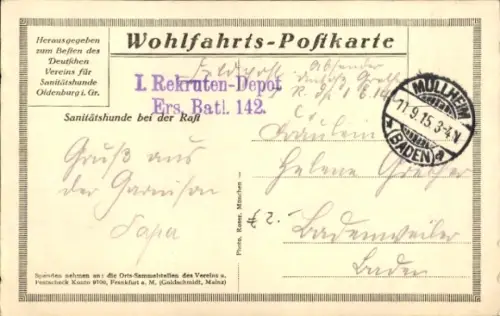 Herausgegeben
zum Besten des
Deutschen
Vereins für
Sanitätshunde
Oldenburg i. Gr.
Wohlfahrts-Postkarte
Feldpost
Absender
I. Rekruten-Depot
Ers. Batl. 142.
MÜLLHEIM
11.9.15. 3-4 N
(BADEN)
Sanitätshunde bei der Rast
Gruß aus
der Garnison
Papa
Fräulein
Helene Grether
Badenweiler
Baden
Photo. Reuer. München
Spenden nehmen an: die Orts-Sammelstellen des Vereins u.
Postscheck Konto 9700, Frankfurt a. M. (Goldschmidt, Mainz)